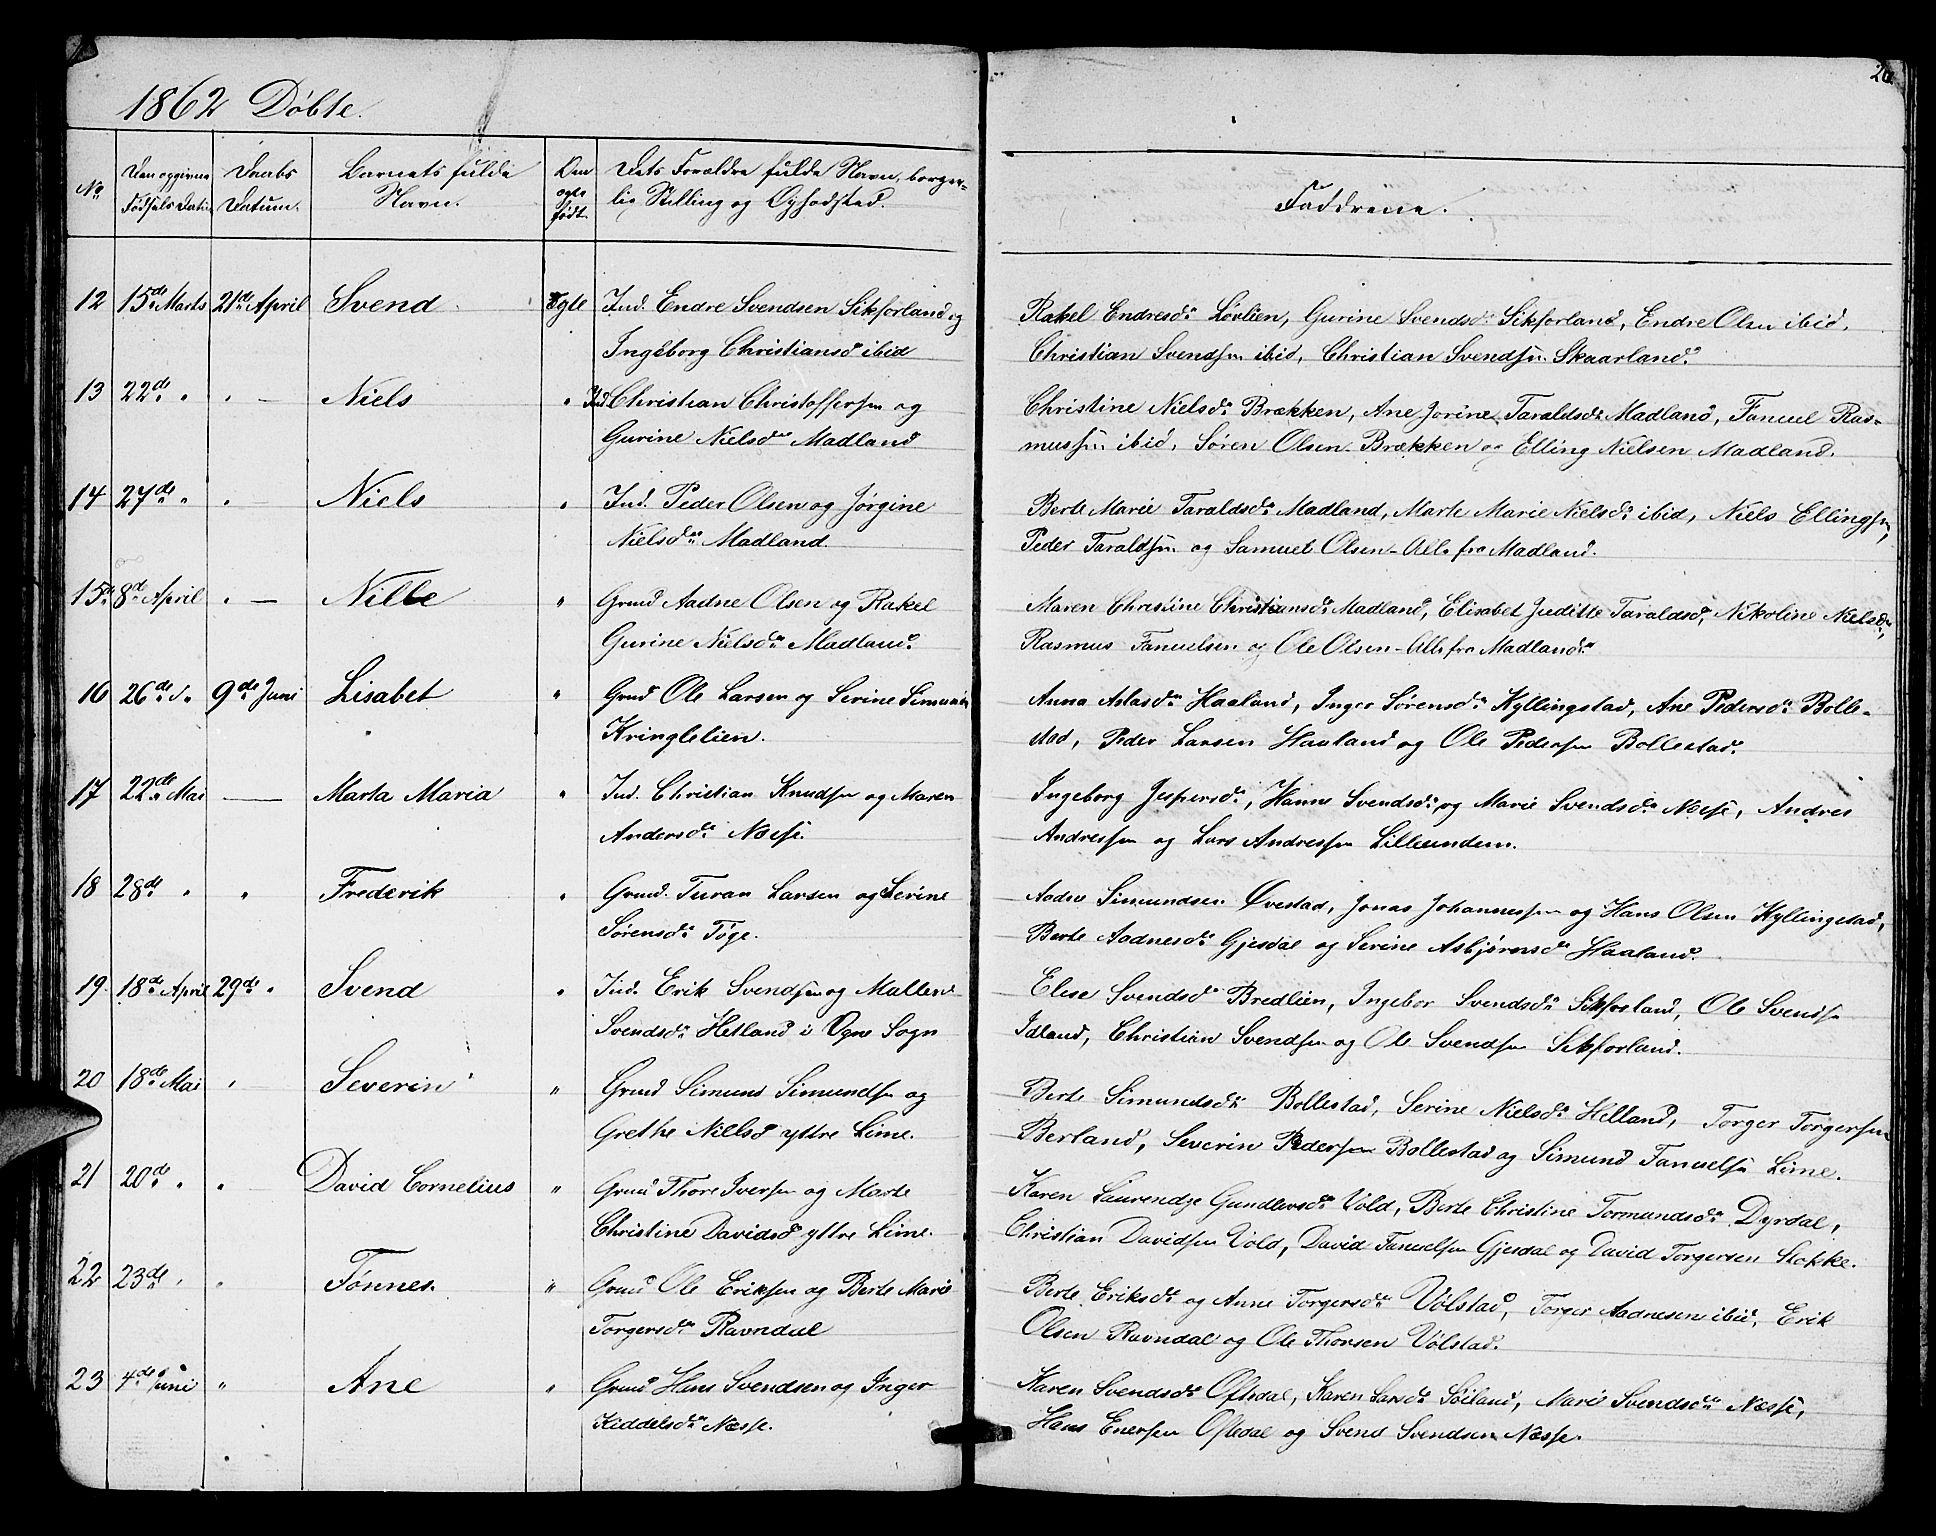 1862 Döbte.
26
No
Den opgivne
Fødsels Datum
Daabs
Datum.
Barnets fulde
Navn.
Om
ægte
født.
Dets Forældre fulde Navn, borger-
lig Stilling og Opholdsted.
Faddrene.
12 15de Marts 21de April Svend Ægte Ind. Endre Svendsen Sikforland og
Ingeborg Christiansd ibid
Rakel Endresdr Løvlien, Gurine Svendsdr Sikforland, Endre Olsen ibid,
Christian Svendsen ibid, Christian Svendsen Skaarland.
13 22de " " — Niels " Ind Christian Christoffersen og
Gurine Nielsdr Madland
Christine Nielsdr Brækken, Ane Jorine Taraldsdr Madland, Fanuel Ras-
mussen ibid, Søren Olsen Brækken og Elling Nielsen Madland.
14 27de " " — Niels " Ind. Peder Olsen og Jørgine
Nielsdr Madland.
Berte Marie Taraldsdr Madland, Marte Marie Nielsdr ibid, Niels Ellingsen,
Peder Taraldsen og Samuel Olsen - Alle fra Madland.
15 8de April " — Nille " Grmd Aadne Olsen og Rakel
Gurine Nielsdr Madland.
Maren Christine Christiansdr Madland, Elisabet Juditte Taraldsd, Nikoline Nielsdr,
Rasmus Fanuelsen og Ole Olsen - Alle fra Madland.
16 26de d. 9de Juni Lisabet " Grmd Ole Larsen og Serine Simunds
Kringlelien.
Anna Aslasdr Haaland, Inger Sørensdr Kyllingstad, Ane Pedersdr Bolle-
stad, Peder Larsen Haaland og Ole Pedersen Bollestad.
17 22de Mai — Marta Maria " Ind. Christian Knudsen og Maren
Andersdr Næsse.
Ingeborg Jespersdr, Hanne Svendsdr og Marie Svendsdr Næsse, Andres
Andressen og Lars Andressen Lilleundem.
18 28de " " Frederik " Grmd. Turan Larsen og Serine
Sørensdr Töge.
Aadne Simundsen Øvestad, Jonas Johannessen og Hans Olsen Kyllingstad,
Berte Aadnesdr Gjesdal og Serine Asbjørnsdr Haaland.
19 18de April 29de " Svend " Ind. Erik Svendsen og Mallene
Svendsdr Hetland i Ogne Sogn
Elese Svendsdr Bredlien, Ingebor Svendsdr Sikforland, Ole Svendsen
Idland, Christian Svendsen og Ole Svendsen Sikforland.
20 18de Mai " Severin " Grmd Simund Simundsen og
Grethe Nielsd yttre Lime.
Berte Simundsdr Bollestad, Serine Nielsdr Helland, Torger Torgersen
Berland, Severin Pedersen Bollestad og Simund Fanuelsen Lime.
21 20de " " David Cornelius " Grmd Thore Iversen og Marte
Christine Davidsd yttre Lime.
Karen Laurendze Gundersdr Vold, Berte Christine Tormundsdr Dyrdal,
Christian Davidsen Vold, David Fanuelsen Gjesdal og David Torgersen Stokke.
22 23de " " Tønnes. " Grmd Ole Eriksen og Berte Marie
Torgersdr Ravndal
Berte Eriksdr og Anne Torgersdr Vølstad, Torger Aadnesen ibid, Erik
Olsen Ravndal og Ole Thorsen Vølstad.
23 4de Juni " Ane " Grmd Hans Svendsen og Inger
Kiddelsdr Næsse.
Karen Svendsdr Oftedal, Karen Larsdr Søiland, Marie Svendsdr Næsse,
Hans Enersen Oftedal og Svend Svendsen Næsse.